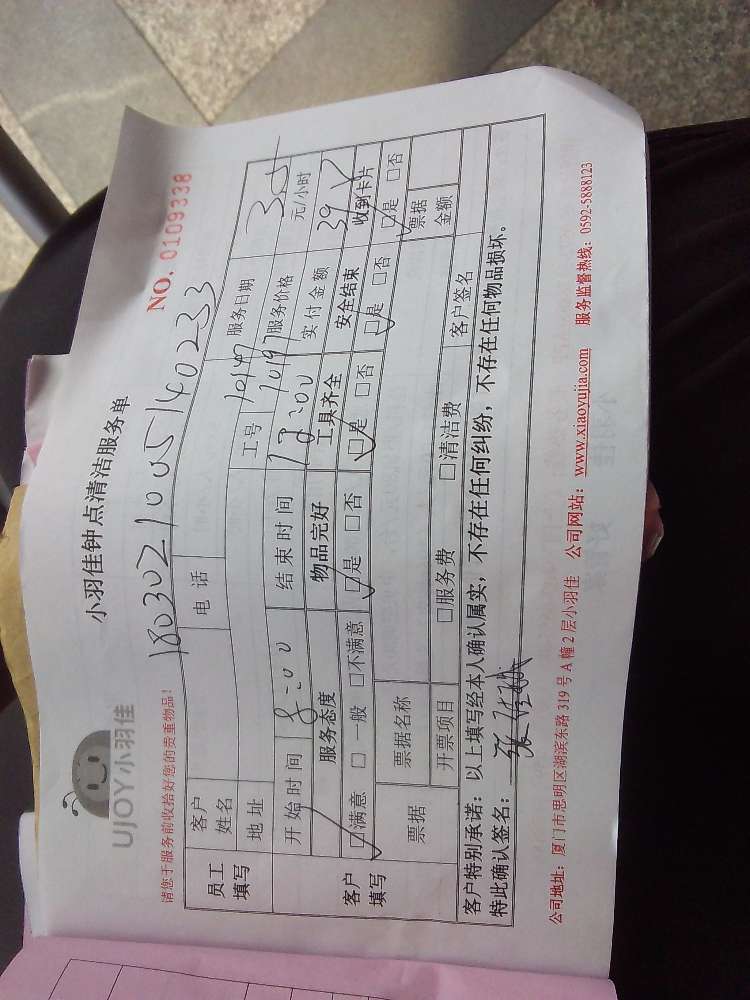 UJOY小羽佳
小羽佳钟点清洁服务单
NO. 0109338
请您于服务前收拾好您的贵重物品!
18030210005140233
员工填写
客户姓名
电话
工号 10147
服务日期
地址
10197
服务价格
35
元/小时
客户填写
开始时间 8:00
结束时间
实付金额 39
服务态度
物品完好
工具齐全
安全结束
收到卡片
☑满意 □一般 □不满意
☑是 □否
☑是 □否
☑是 □否
☑是 □否
票据
票据名称
票据金额
开票项目
□服务费 □清洁费
客户签名
客户特别承诺:以上填写经本人确认属实,不存在任何纠纷,不存在任何物品损坏。
特此确认签名:张
公司地址:厦门市思明区湖滨东路319号A幢2层小羽佳 公司网站:www.xiaoyujia.com 服务监督热线:0592-5888123